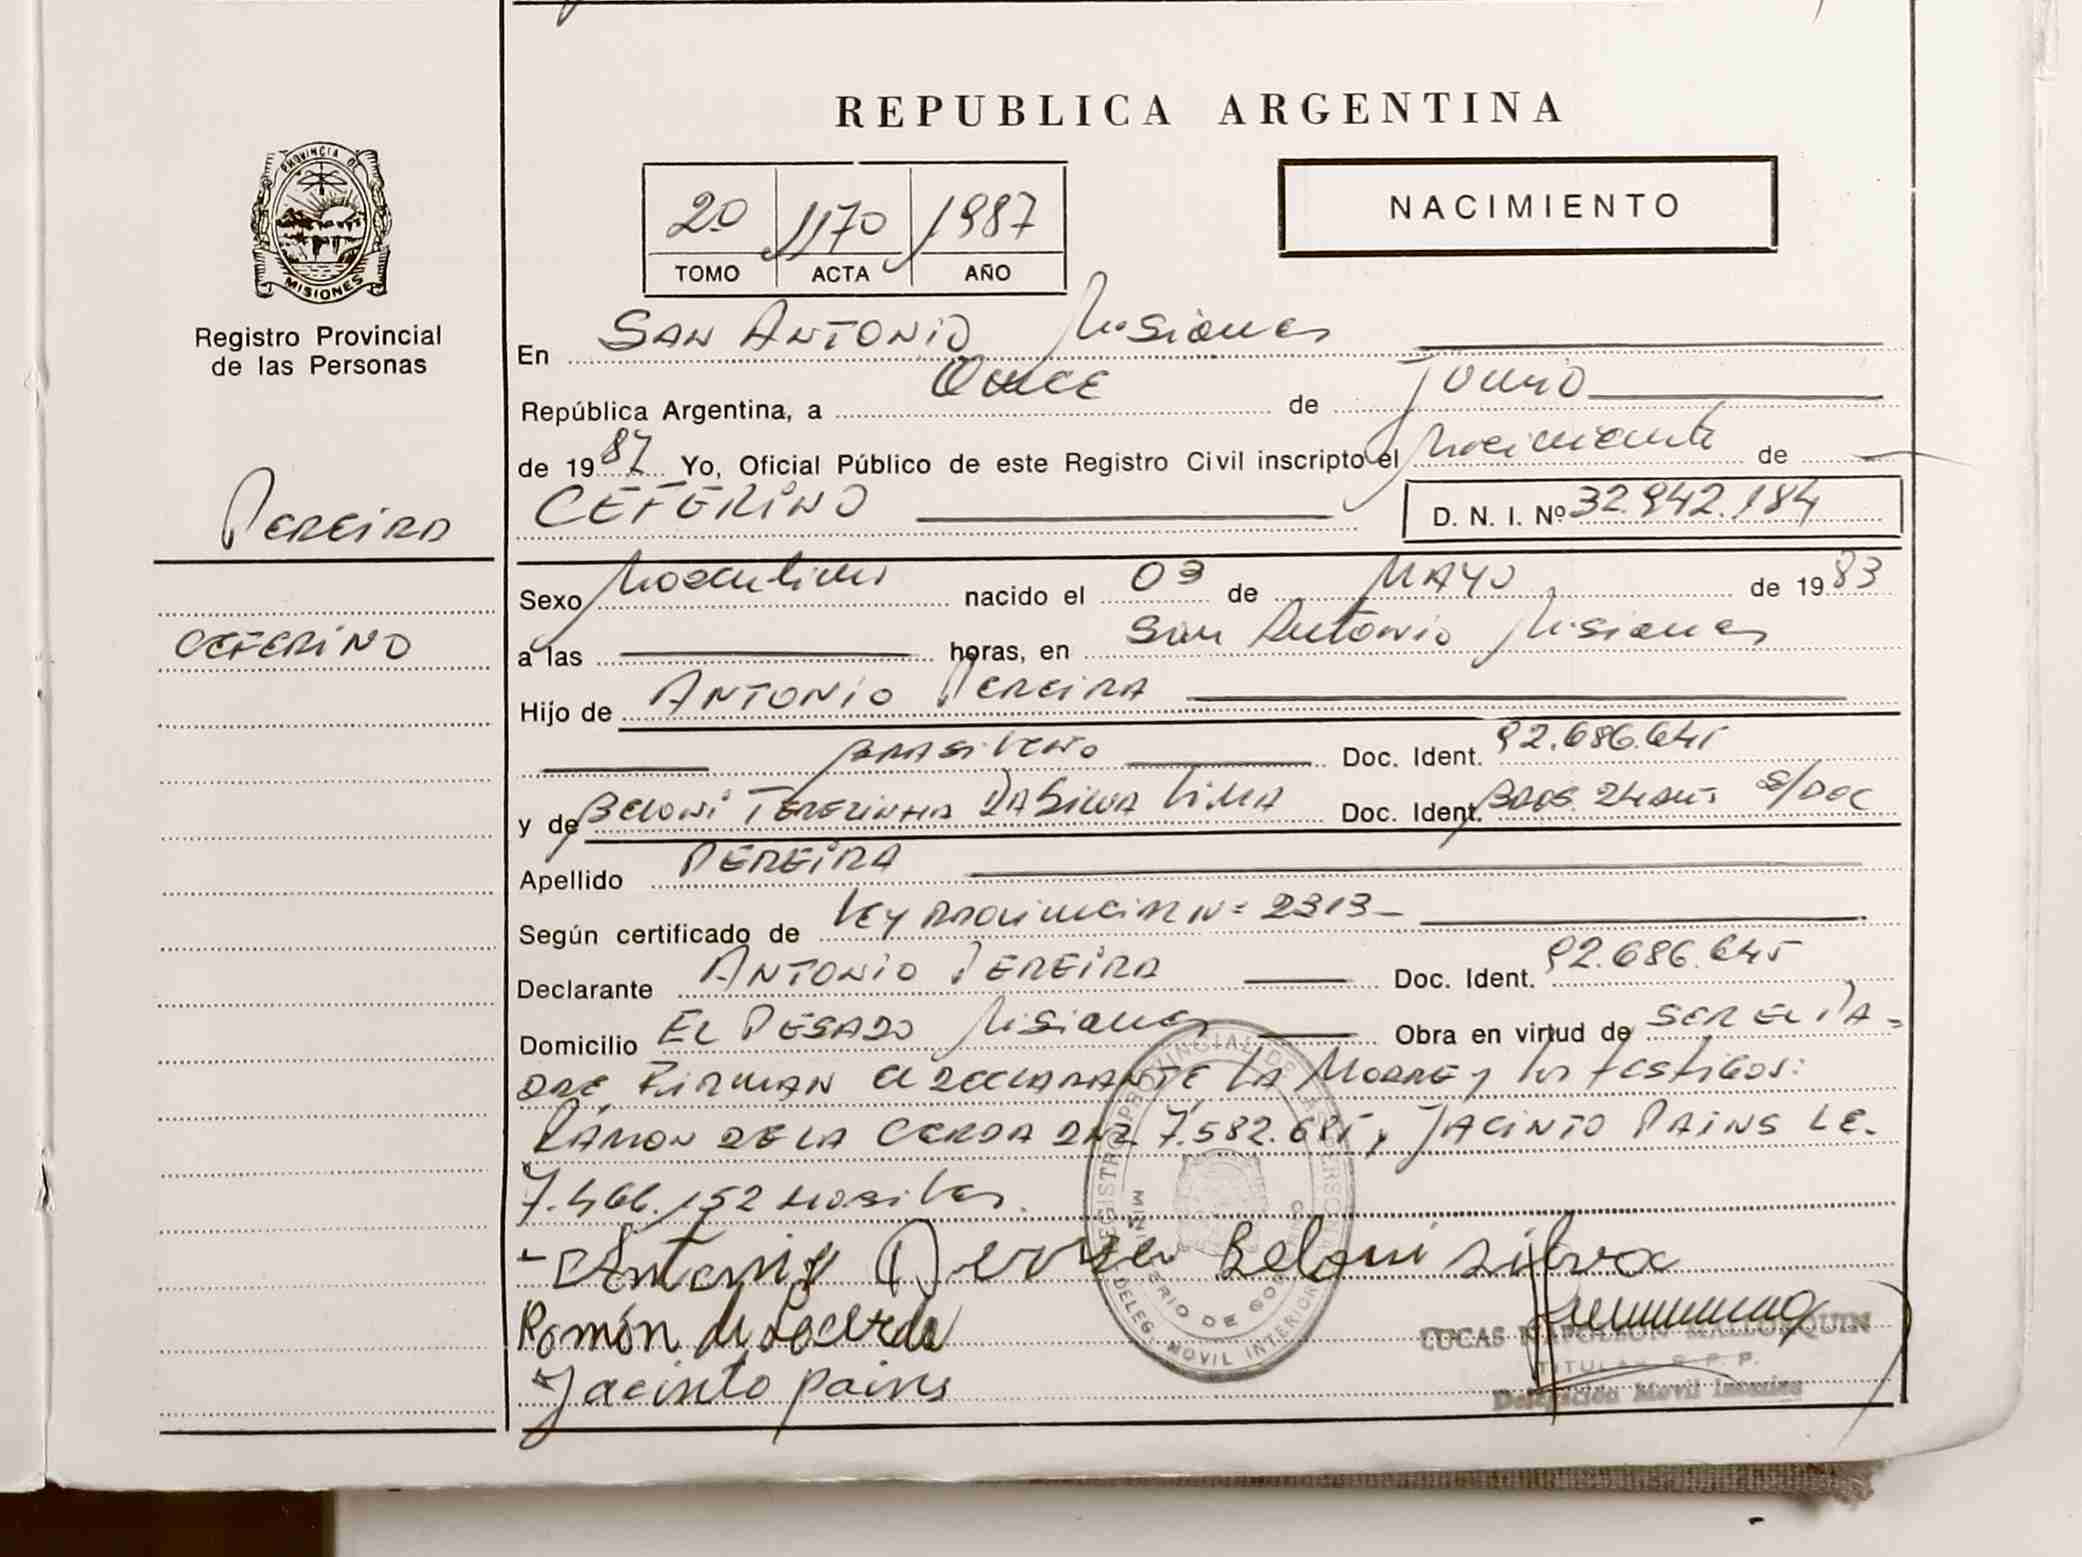 REPUBLICA ARGENTINA
PROVINCIA DE
MISIONES
Registro Provincial
de las Personas
20 1170 1987
TOMO ACTA AÑO
NACIMIENTO
En San Antonio Misiones
República Argentina, a Once de Junio
de 1987 Yo, Oficial Público de este Registro Civil inscripto el Nacimiento de
Pereira
CEFERINO
D. N. I. Nº 32.942.184
Sexo Masculino nacido el 03 de MAYO de 1983
CEFERINO
a las horas, en San Antonio Misiones
Hijo de ANTONIO PEREIRA
Brasileño Doc. Ident. 92.686.645
y de Beloni Terezinha Da Silva Lima Doc. Ident. Bras. 24 años s/Doc
Apellido PEREIRA
Según certificado de Ley Provincial Nº 2313-
Declarante ANTONIO PEREIRA Doc. Ident. 92.686.645
Domicilio EL PESADO Misiones Obra en virtud de SER EL PA-
DRE, FIRMAN el DECLARANTE LA MADRE y los testigos:
RAMON DE LA CERDA DNI. 7.582.685, JACINTO PAINS LE.
7.466.152
Antonio Pereira Beloni silva
Ramón de Lacerda
Jacinto pains
REGISTRO PROVINCIAL DE LAS PERSONAS
MINISTERIO DE GOBIERNO
DELEG. MOVIL INTERIOR
LUCAS NAPOLEON MALLORQUIN
TITULAR R. P. P.
Delegación Movil Interior